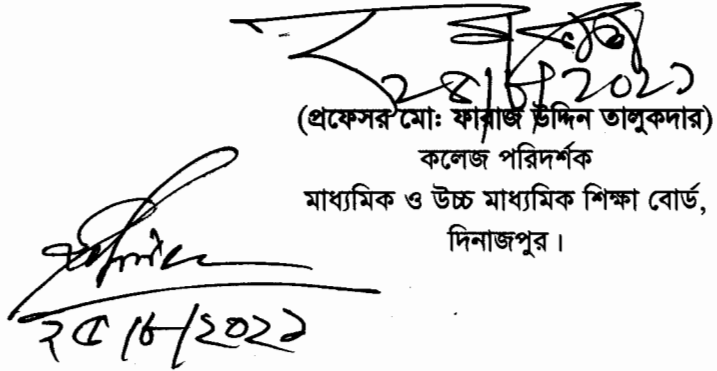 ২৫/৮/২০২১
(প্রফেসর মো: ফারাজ উদ্দিন তালুকদার)
কলেজ পরিদর্শক
মাধ্যমিক ও উচ্চ মাধ্যমিক শিক্ষা বোর্ড,
দিনাজপুর।
২৫/৮/২০২১